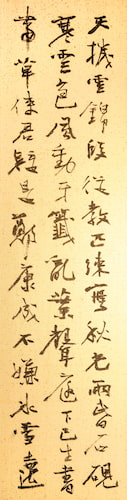 天機雲錦段從教匹練寫秋光雨昏石硯
寒雲色風動牙籤亂葉聲庭下已生書
帶草使君疑是鄭康成不嫌冰雪遶